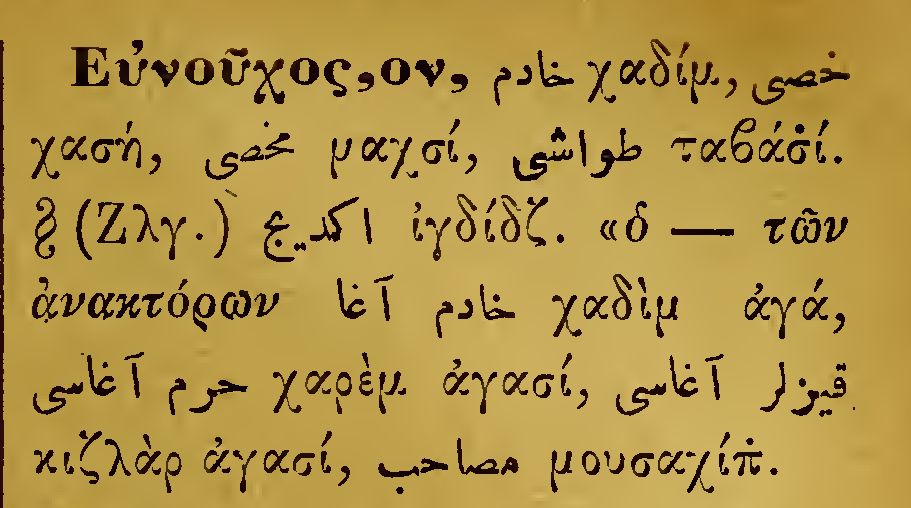 Εὐνοῦχος,ον, خادم χαδίμ, خصی
χασή, مخصی μαχσί, طواشی ταβάσ̇ί.
§ (Ζλγ.) اكدیج ἰγδίδζ. «ὁ — τῶν
ἀνακτόρων خادم آغا χαδὶμ ἀγά,
حرم آغاسی χαρὲμ ἀγασί, قیزلر آغاسی
κιζλὰρ ἀγασί, مصاحب μουσαχίπ̇.